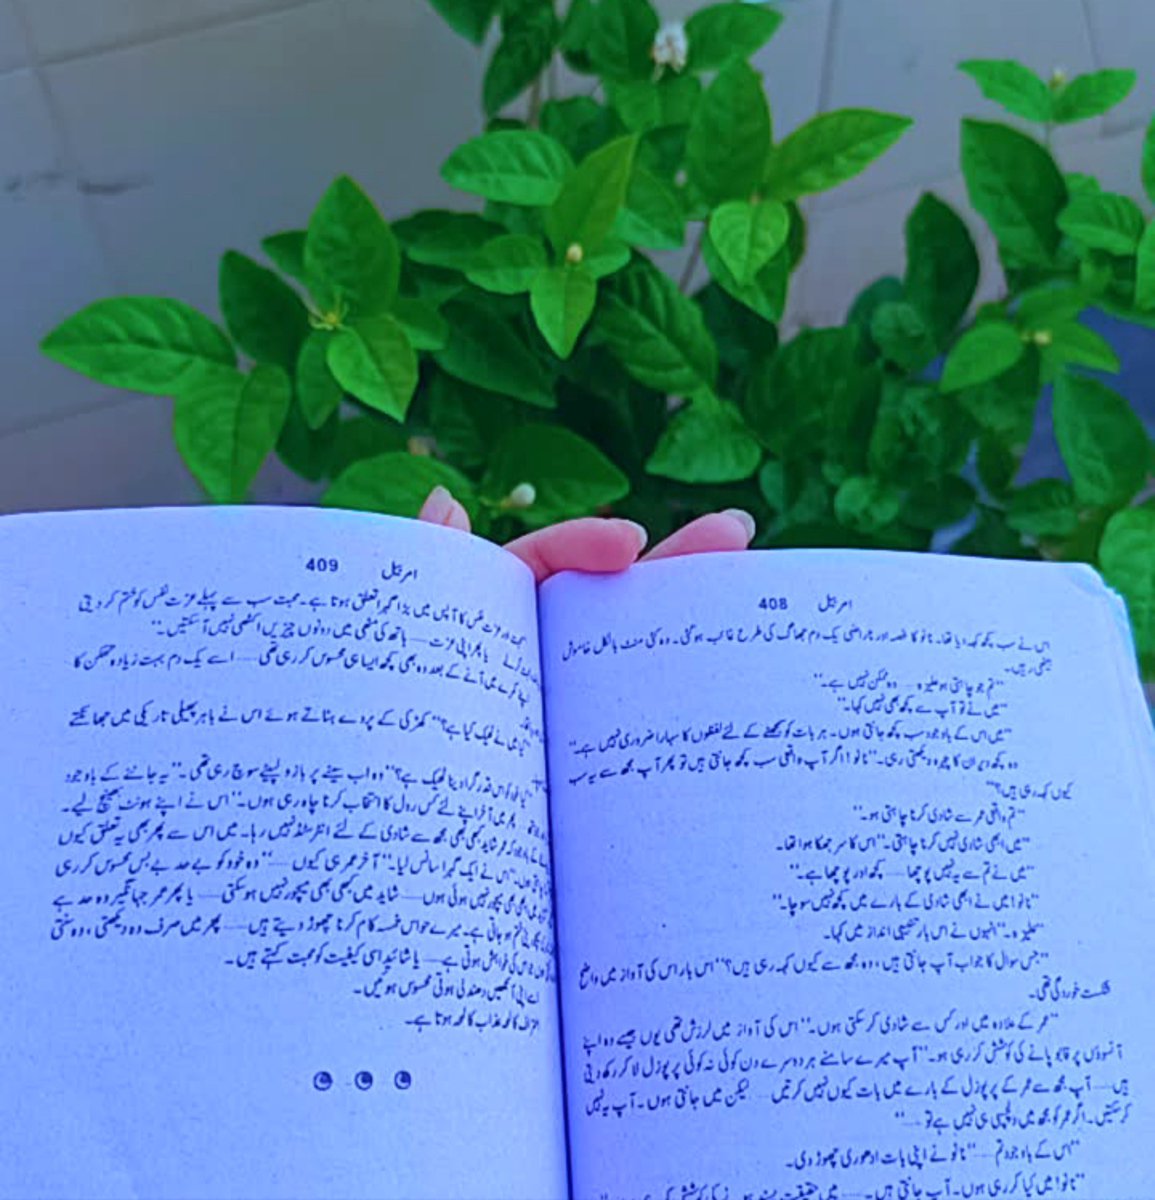 امر بیل 408
اس نے سب کچھ کہہ دیا تھا۔ نانو کا غصہ اور ناراضی یک دم جھاگ کی طرح غائب ہو گئی۔ وہ کئی منٹ بالکل خاموش
بیٹھی رہیں۔
"تم جو چاہتی ہو علیزہ ..... وہ ممکن نہیں ہے۔"
"میں نے تو آپ سے کچھ بھی نہیں کہا۔"
"میں اس کے باوجود سب کچھ جانتی ہوں۔ ہر بات کو سمجھنے کے لئے لفظوں کا سہارا ضروری نہیں ہے۔"
وہ کچھ دیر ان کا چہرہ دیکھتی رہی۔ "نانو! اگر آپ واقعی سب کچھ جانتی ہیں تو پھر آپ مجھ سے یہ سب
کیوں کہہ رہی ہیں؟"
"تم واقعی عمر سے شادی کرنا چاہتی ہو۔"
"میں ابھی شادی نہیں کرنا چاہتی۔" اس کا سر جھکا ہوا تھا۔
"میں نے تم سے یہ نہیں پوچھا ..... کچھ اور پوچھا ہے۔"
"نانو! میں نے ابھی شادی کے بارے میں کچھ نہیں سوچا۔"
"علیزہ۔" انہوں نے اس بار تنبیہی انداز میں کہا۔
"جس سوال کا جواب آپ جانتی ہیں، وہ مجھ سے کیوں کہہ رہی ہیں؟" اس بار اس کی آواز میں واضح
شکست خوردگی تھی۔
"عمر کے علاوہ میں اور کس سے شادی کر سکتی ہوں۔" اس کی آواز میں لرزش تھی یوں جیسے وہ اپنے
آنسوؤں پر قابو پانے کی کوشش کر رہی ہو۔ "آپ میرے سامنے ہر دوسرے دن کوئی نہ کوئی پرپوزل لا کر رکھ دیتی
ہیں ..... آپ مجھ سے عمر کے پرپوزل کے بارے میں بات کیوں نہیں کرتیں ..... لیکن میں جانتی ہوں۔ آپ یہ نہیں
کر سکتیں۔ اگر عمر کو مجھ میں دلچسپی ہی نہیں ہے تو ....."
"اس کے باوجود تم ....." نانو نے اپنی بات ادھوری چھوڑ دی۔
"نانو! میں کیا کر رہی ہوں۔ آپ جانتی ہیں ..... میں حقیقت پسند ہونے کی کوشش کر
امر بیل 409
عزت نفس کا آپس میں بڑا گہرا تعلق ہوتا ہے۔ محبت سب سے پہلے عزت نفس کو ختم کر دیتی
یا پھر اپنی عزت ..... ہاتھ کی مٹھی میں دونوں چیزیں اکٹھی نہیں آ سکتیں۔"
اپنے کمرے میں آنے کے بعد وہ بھی کچھ ایسا ہی محسوس کر رہی تھی ..... اسے یک دم بہت زیادہ تھکن کا
"کیا میں نے ٹھیک کیا ہے؟" کھڑکی کے پردے ہٹاتے ہوئے اس نے باہر پھیلی تاریکی میں جھانکتے
کو اس قدر گرا دینا ٹھیک ہے؟" وہ اب سینے پر بازو لپیٹے سوچ رہی تھی۔ "یہ جاننے کے باوجود
پھر میں آخر اپنے لئے کس رول کا انتخاب کرنا چاہ رہی ہوں۔" اس نے اپنے ہونٹ بھینچ لیے۔
کہ عمر شاید کبھی بھی مجھ سے شادی کے لئے انٹرسٹڈ نہیں رہا۔ میں اس سے پھر بھی یہ تعلق کیوں
ہوں۔" اس نے ایک گہرا سانس لیا۔ "آخر عمر ہی کیوں ....." وہ خود کو بے حد بے بس محسوس کر رہی
میں ابھی بھی میچور نہیں ہوئی ہوں ..... شاید میں کبھی بھی میچور نہیں ہو سکتی ..... یا پھر عمر جہانگیر وہ حد ہے
ختم ہو جاتی ہے۔ میرے حواس خمسہ کام کرنا چھوڑ دیتے ہیں ..... پھر میں صرف وہ دیکھتی، وہ سنتی
ہوں جو اس کی خواہش ہوتی ہے ..... یا شاید اسی کیفیت کو محبت کہتے ہیں۔
اسے اپنی آنکھیں دھندلی ہوتی محسوس ہوئیں۔
اعتراف کا لمحہ عذاب کا لمحہ ہوتا ہے۔